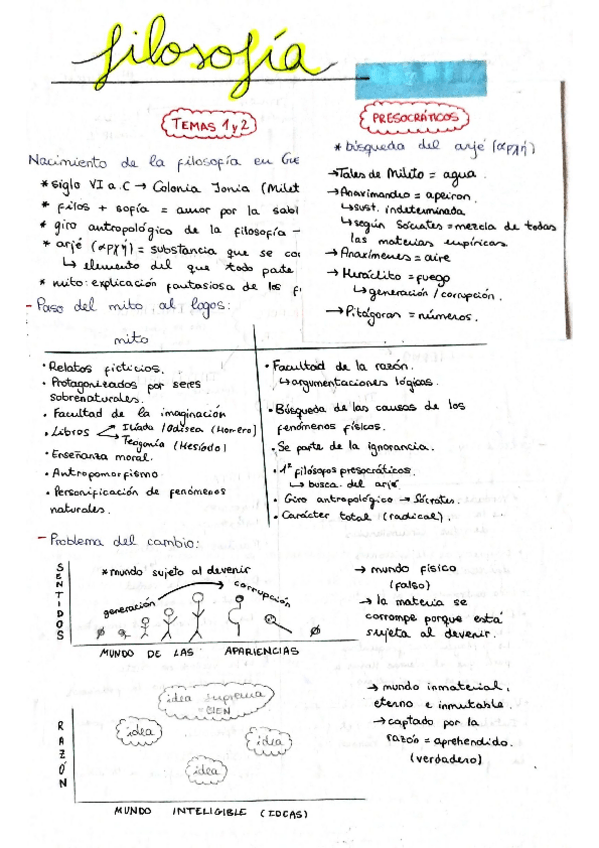 filosofía
TEMAS 1 y 2
Nacimiento de la filosofía en Gre
* siglo VI a.C → Colonia Jonia (Milet
* filos + sofía = amor por la sabi
* giro antropológico de la filosofía -
* arjé (αρχή) = substancia que se co
↳ elemento del que todo parte
* mito: explicación fantasiosa de los f
PRESOCRÁTICOS
* búsqueda del arjé (αρχή)
→ Tales de Mileto = agua.
→ Anaximandro = apeiron.
↳ sust. indeterminada
↳ según Sócrates = mezcla de todas
las materias empíricas.
→ Anaxímenes = aire
→ Heráclito = fuego
↳ generación / corrupción.
→ Pitágoras = números.
- Paso del mito al logos:
mito
· Relatos ficticios.
· Protagonizados por seres
sobrenaturales.
· Facultad de la imaginación
· Libros
Ilíada / Odisea (Homero)
Teogonía (Hesíodo)
· Enseñanza moral.
· Antropomorfismo
· Personificación de fenómenos
naturales.
· Facultad de la razón.
↳ argumentaciones lógicas.
· Búsqueda de las causas de los
fenómenos físicos.
· Se parte de la ignorancia.
· 1º filósofos presocráticos.
↳ busca. del arjé.
· Giro antropológico → Sócrates.
· Carácter total (radical).
- Problema del cambio:
SENTIDOS
* mundo sujeto al devenir
generación
corrupción
MUNDO DE LAS APARIENCIAS
→ mundo físico
(falso)
→ la materia se
corrompe porque está
sujeta al devenir.
RAZÓN
idea suprema
= BIEN
idea
idea
idea
MUNDO INTELIGIBLE (IDEAS)
→ mundo inmaterial,
eterno e inmutable.
→ captado por la
razón = aprehendido.
(verdadero)